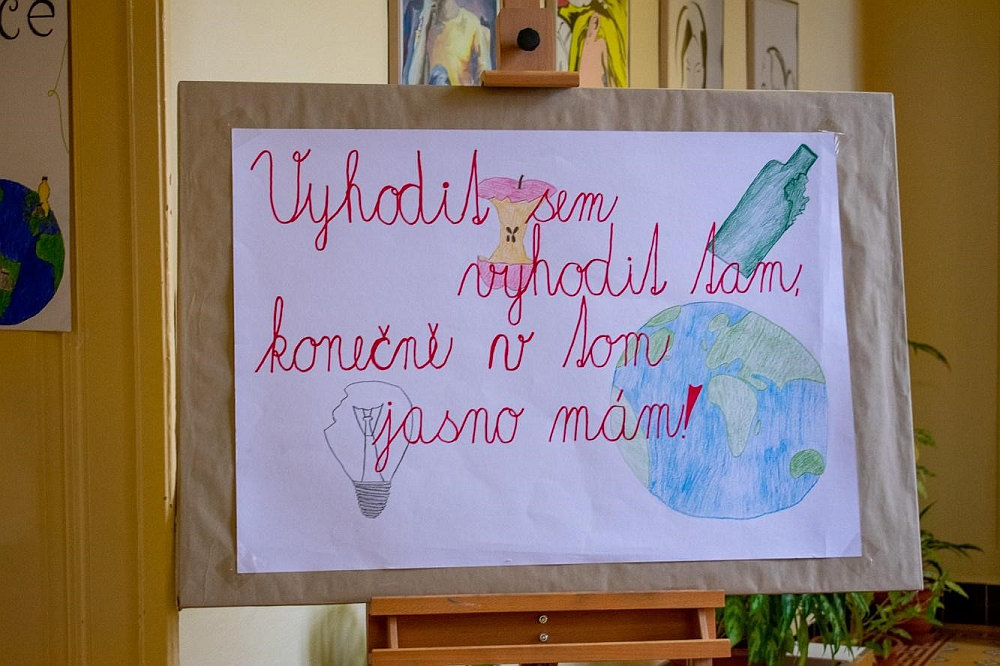 ce
Vyhodit sem
vyhodit tam,
konečně v tom
jasno mám!